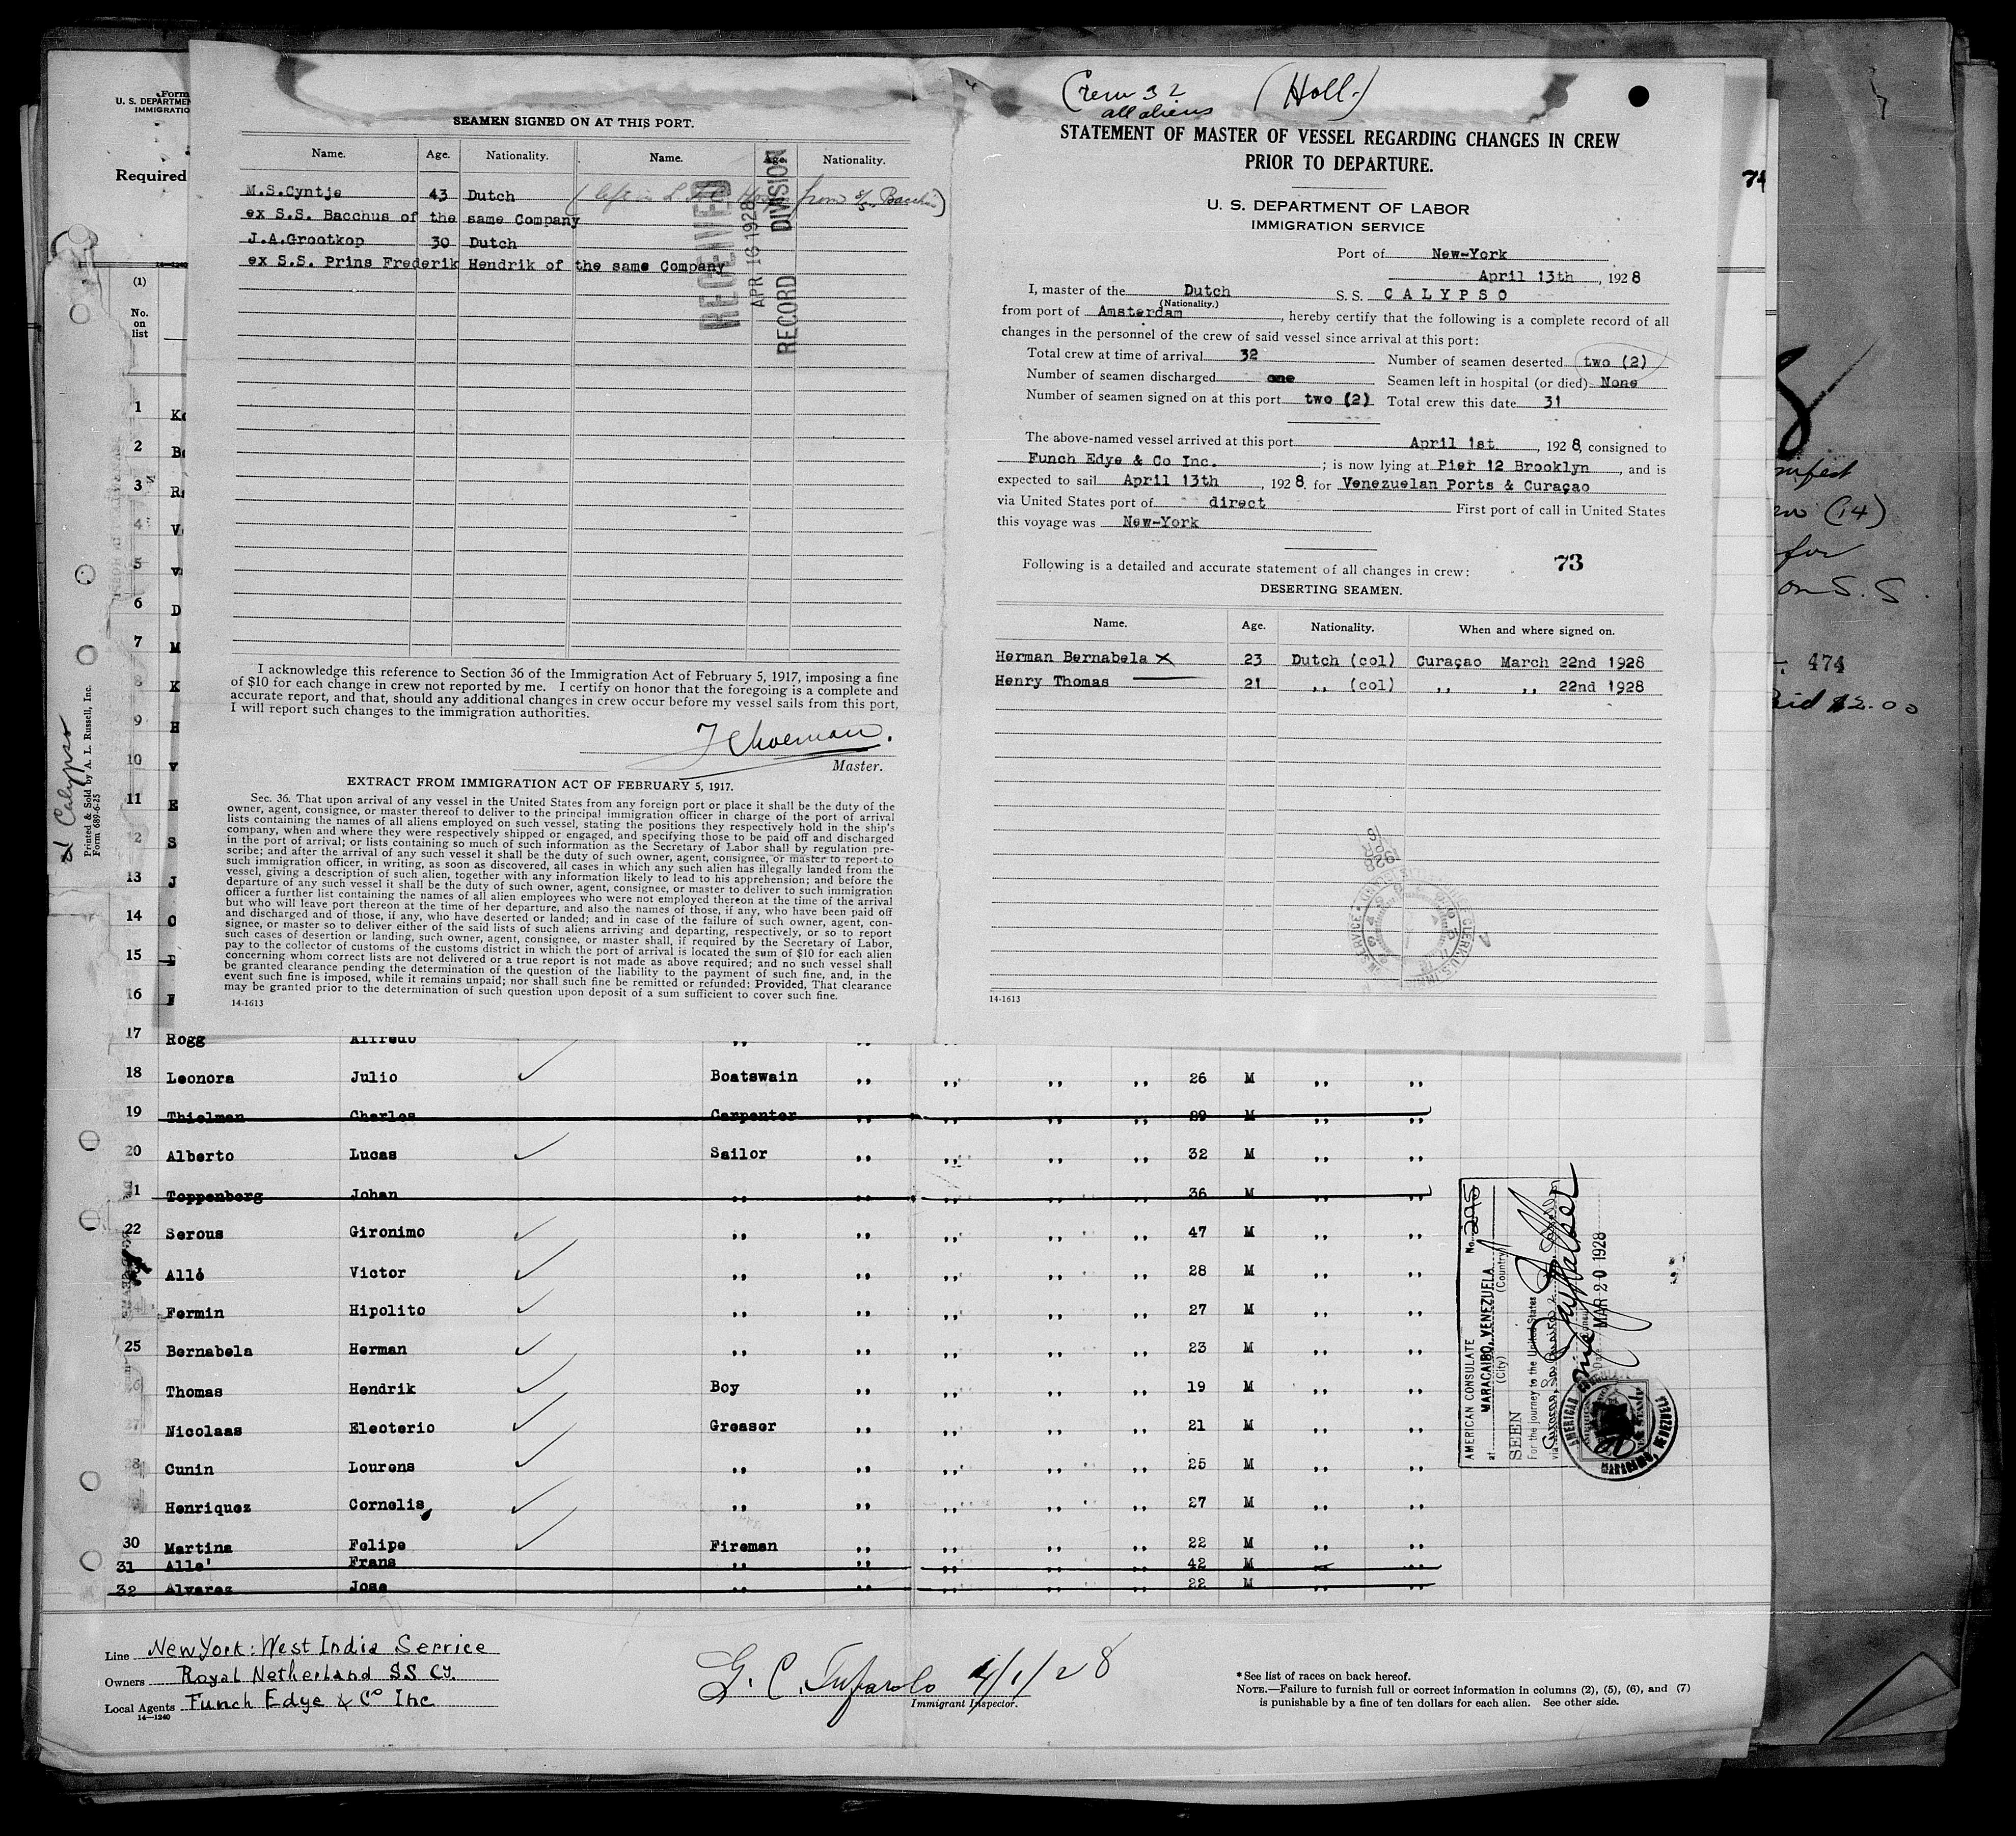 Form
U. S. DEPARTMEN
IMMIGRATIO
Required
14-1240
(1)
No.
on
list
1 K
2 B
3 R
4 V
5 v
6 D
7 M
8 K
9 H
10 v
11 E
2 S
13 J
14 C
15
16
Calypso
Printed & Sold by A. L. Russell, Inc.
Form 689-6-25
SEAMEN SIGNED ON AT THIS PORT.
Name. Age. Nationality. Name. Age. Nationality.
M.S.Cyntje 43 Dutch (left in from S/S. Bacchus)
ex S.S. Bacchus of the same Company
J.A.Grootkop 30 Dutch
ex S.S. Prins Frederik Hendrik of the same Company
RECEIVED
APR 16 1928
RECORD DIVISION
I acknowledge this reference to Section 36 of the Immigration Act of February 5, 1917, imposing a fine
of $10 for each change in crew not reported by me. I certify on honor that the foregoing is a complete and
accurate report, and that, should any additional changes in crew occur before my vessel sails from this port,
I will report such changes to the immigration authorities.
Master.
EXTRACT FROM IMMIGRATION ACT OF FEBRUARY 5, 1917.
Sec. 36. That upon arrival of any vessel in the United States from any foreign port or place it shall be the duty of the
owner, agent, consignee, or master thereof to deliver to the principal immigration officer in charge of the port of arrival
lists containing the names of all aliens employed on such vessel, stating the positions they respectively hold in the ship's
company, when and where they were respectively shipped or engaged, and specifying those to be paid off and discharged
in the port of arrival; or lists containing so much of such information as the Secretary of Labor shall by regulation pre-
scribe; and after the arrival of any such vessel it shall be the duty of such owner, agent, consignee, or master to report to
such immigration officer, in writing, as soon as discovered, all cases in which any such alien has illegally landed from the
vessel, giving a description of such alien, together with any information likely to lead to his apprehension; and before the
departure of any such vessel it shall be the duty of such owner, agent, consignee, or master to deliver to such immigration
officer a further list containing the names of all alien employees who were not employed thereon at the time of the arrival
but who will leave port thereon at the time of her departure, and also the names of those, if any, who have been paid off
and discharged and of those, if any, who have deserted or landed; and in case of the failure of such owner, agent, con-
signee, or master so to deliver either of the said lists of such aliens arriving and departing, respectively, or so to report
such cases of desertion or landing, such owner, agent, consignee, or master shall, if required by the Secretary of Labor,
pay to the collector of customs of the customs district in which the port of arrival is located the sum of $10 for each alien
concerning whom correct lists are not delivered or a true report is not made as above required; and no such vessel shall
be granted clearance pending the determination of the question of the liability to the payment of such fine, and, in the
event such fine is imposed, while it remains unpaid; nor shall such fine be remitted or refunded: Provided, That clearance
may be granted prior to the determination of such question upon deposit of a sum sufficient to cover such fine.
14-1613
Crew 32 (Holl.)
all aliens
STATEMENT OF MASTER OF VESSEL REGARDING CHANGES IN CREW
PRIOR TO DEPARTURE.
U. S. DEPARTMENT OF LABOR
IMMIGRATION SERVICE
Port of New-York
April 13th, 1928
I, master of the Dutch S. S. CALYPSO
(Nationality.)
from port of Amsterdam, hereby certify that the following is a complete record of all
changes in the personnel of the crew of said vessel since arrival at this port:
Total crew at time of arrival 32 Number of seamen deserted two (2)
Number of seamen discharged one Seamen left in hospital (or died) None
Number of seamen signed on at this port two (2) Total crew this date 31
The above-named vessel arrived at this port April 1st, 1928, consigned to
Funch Edye & Co Inc. ; is now lying at Pier 12 Brooklyn, and is
expected to sail April 13th, 1928. for Venezuelan Ports & Curaçao
via United States port of direct First port of call in United States
this voyage was New-York
73
Following is a detailed and accurate statement of all changes in crew:
DESERTING SEAMEN.
Name. Age. Nationality. When and where signed on.
Herman Bernabela X 23 Dutch (col) Curaçao March 22nd 1928
Henry Thomas 21 ,, (col) ,, ,, 22nd 1928
1928
14-1613
74
(14)
for
on S. S.
474
$2.00
17 Rogg Alfredo ,, ,, ,,
18 Leonora Julio Boatswain ,, ,, ,, ,, 26 M ,, ,,
19 Thielman Charles Carpenter ,, ,, ,, ,, 29 M ,, ,,
20 Alberto Lucas Sailor ,, ,, ,, ,, 32 M ,, ,,
1 Toppenberg Johan ,, ,, ,, ,, ,, 36 M ,, ,,
22 Serous Gironimo ,, ,, ,, ,, ,, 47 M ,, ,,
Allé Victor ,, ,, ,, ,, ,, 28 M ,, ,,
Fermin Hipolito ,, ,, ,, ,, ,, 27 M ,, ,,
25 Bernabela Herman ,, ,, ,, ,, ,, 23 M ,, ,,
6 Thomas Hendrik Boy ,, ,, ,, ,, 19 M ,, ,,
27 Nicolaas Electerio Greaser ,, ,, ,, ,, 21 M ,, ,,
8 Cunin Lourens ,, ,, ,, ,, ,, 25 M ,, ,,
Henriquez Cornelis ,, ,, ,, ,, ,, 27 M ,, ,,
30 Martina Felipe Fireman ,, ,, ,, ,, 22 M ,, ,,
31 Alle' Frans ,, ,, ,, ,, ,, 42 M ,, ,,
32 Alvarez Jose ,, ,, ,, ,, ,, 22 M ,, ,,
AMERICAN CONSULATE No. 295
at MARACAIBO, VENEZUELA
(City) (Country)
SEEN
For the journey to the United States
via
MAR 20 1928
AMERICAN CONSULATE
MARACAIBO, VENEZUELA
Line New York: West India Service
Owners Royal Netherland SS Cy.
Local Agents Funch Edye & Co Inc
14-1240
G. C. Tufarolo 4/1/28
Immigrant Inspector.
*See list of races on back hereof.
NOTE.—Failure to furnish full or correct information in columns (2), (5), (6), and (7)
is punishable by a fine of ten dollars for each alien. See other side.